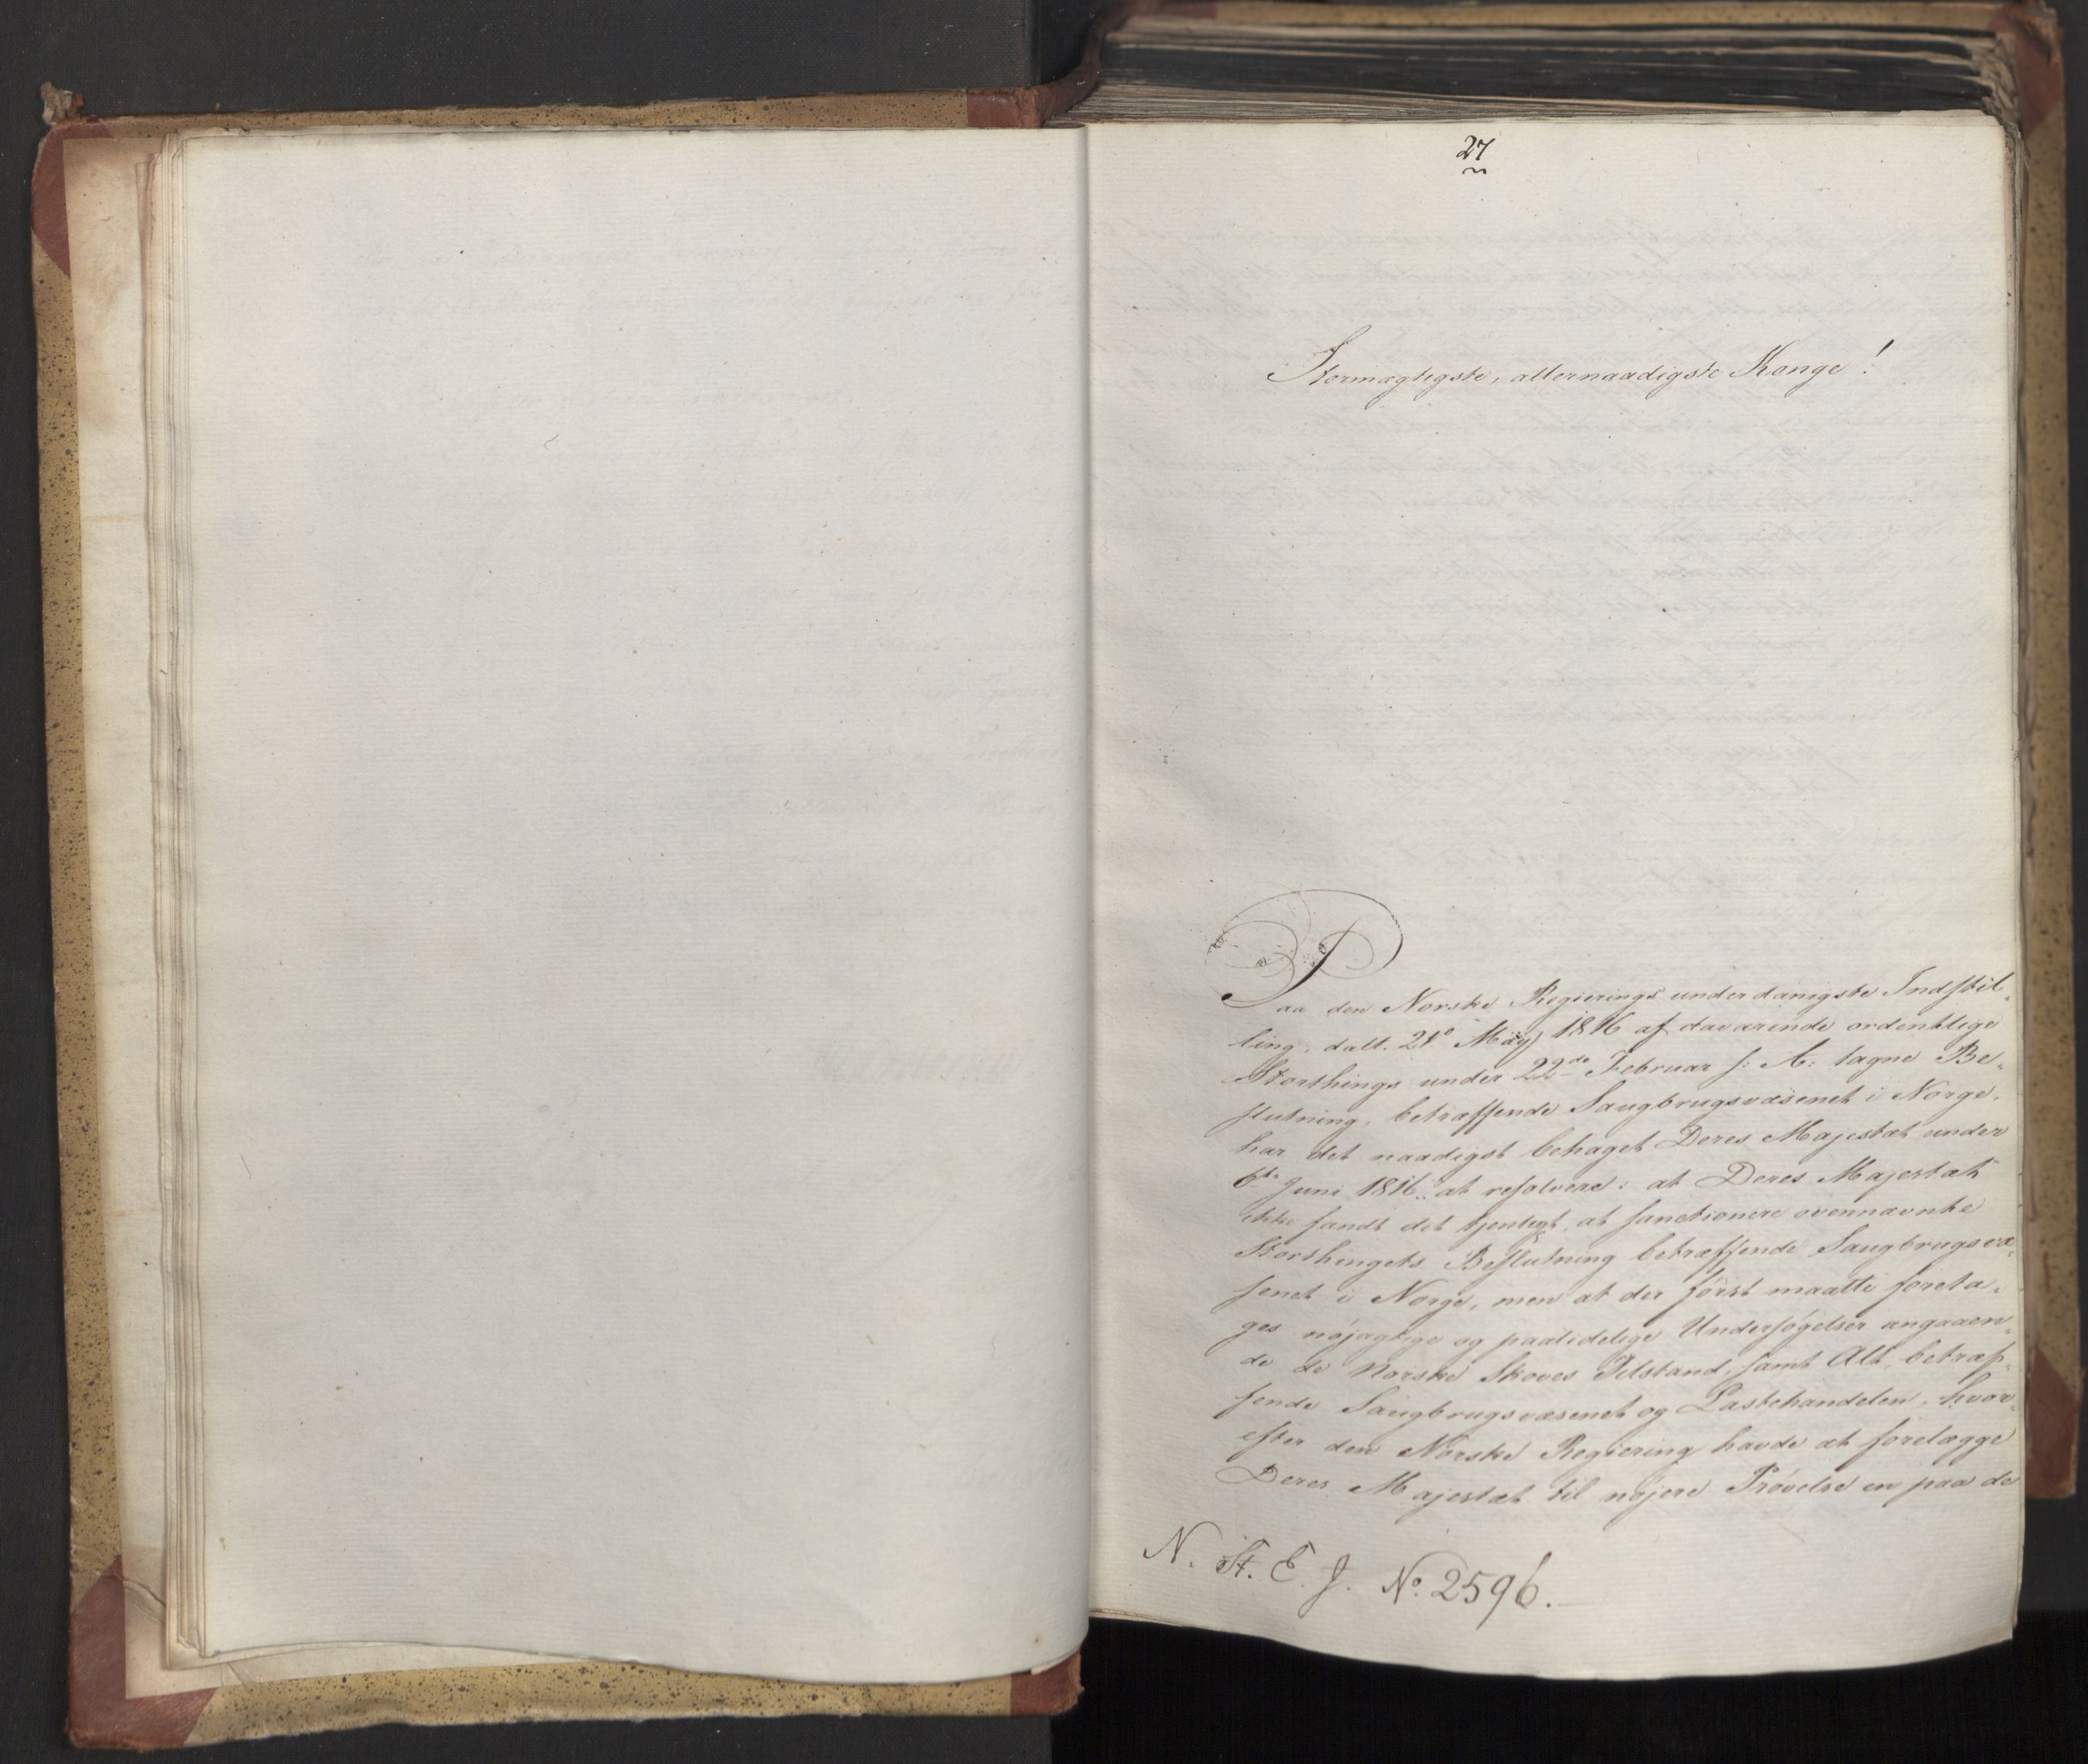 27
Stormægtigste, allernaadigste Konge!
Paa den Norske Regierings underdanigste Indstil-
ling, datt. 21de May 1816 af daværende ordentlige
Storthings under 22de Februar s: A: tagne Be-
slutning, betræffende Saugbrugsvæsenet i Norge,
har det naadigst behaget Deres Majestæt under
6te Juni 1816 at resolvere: at Deres Majestæt
ikke fandt det tjenligt, at sanctionere ovennævnte
Storthingets Beslutning betræffende Saugbrugsvæ-
senet i Norge, men at der först maatte foreta-
ges nøjagtige og paalidelige Undersøgelser angaaen-
de de Norske Skoves Tilstand, samt Alt, betræf-
fende Saugbrugsvæsenet og Lastehandelen, hvor-
efter den Norske Regiering havde at forelægge
Deres Majestæt til nøjere Prøvelse en paa de
N. St. E. J. No. 2596.